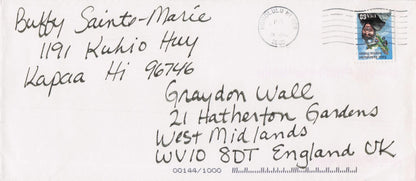 Buffy Sainte-Marie
1191 Kuhio Huy
Kapaa Hi 96746
HONOLULU HI
60
USA
Graydon Wall
21 Hatherton Gardens
West Midlands
WV10 8DT England UK
00144/1000